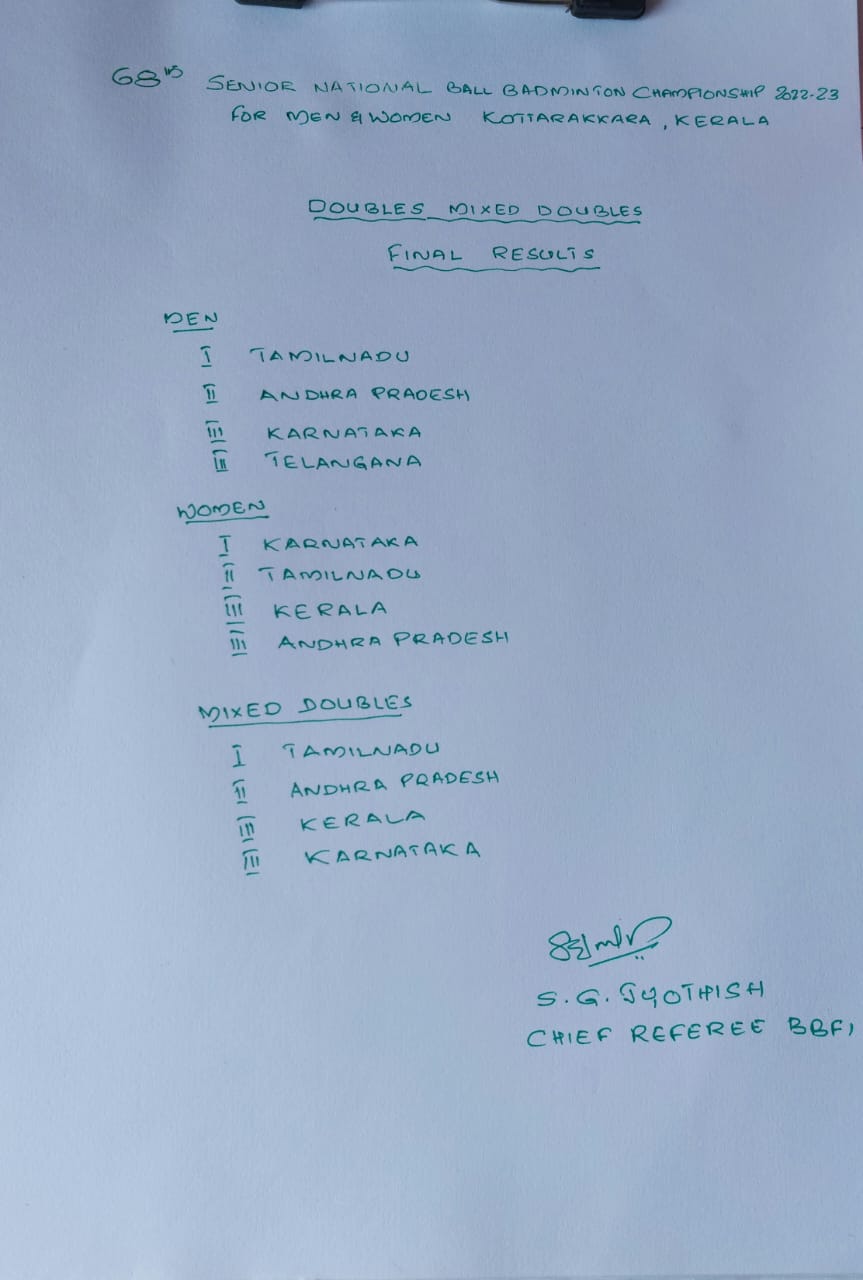 68th SENIOR NATIONAL BALL BADMINTON CHAMPIONSHIP 2022-23
FOR MEN & WOMEN KOTTARAKKARA, KERALA
DOUBLES MIXED DOUBLES
FINAL RESULTS
MEN
I TAMILNADU
II ANDHRA PRADESH
III KARNATAKA
III TELANGANA
WOMEN
I KARNATAKA
II TAMILNADU
III KERALA
III ANDHRA PRADESH
MIXED DOUBLES
I TAMILNADU
II ANDHRA PRADESH
III KERALA
III KARNATAKA
S. G. JYOTHISH
CHIEF REFEREE BBFI